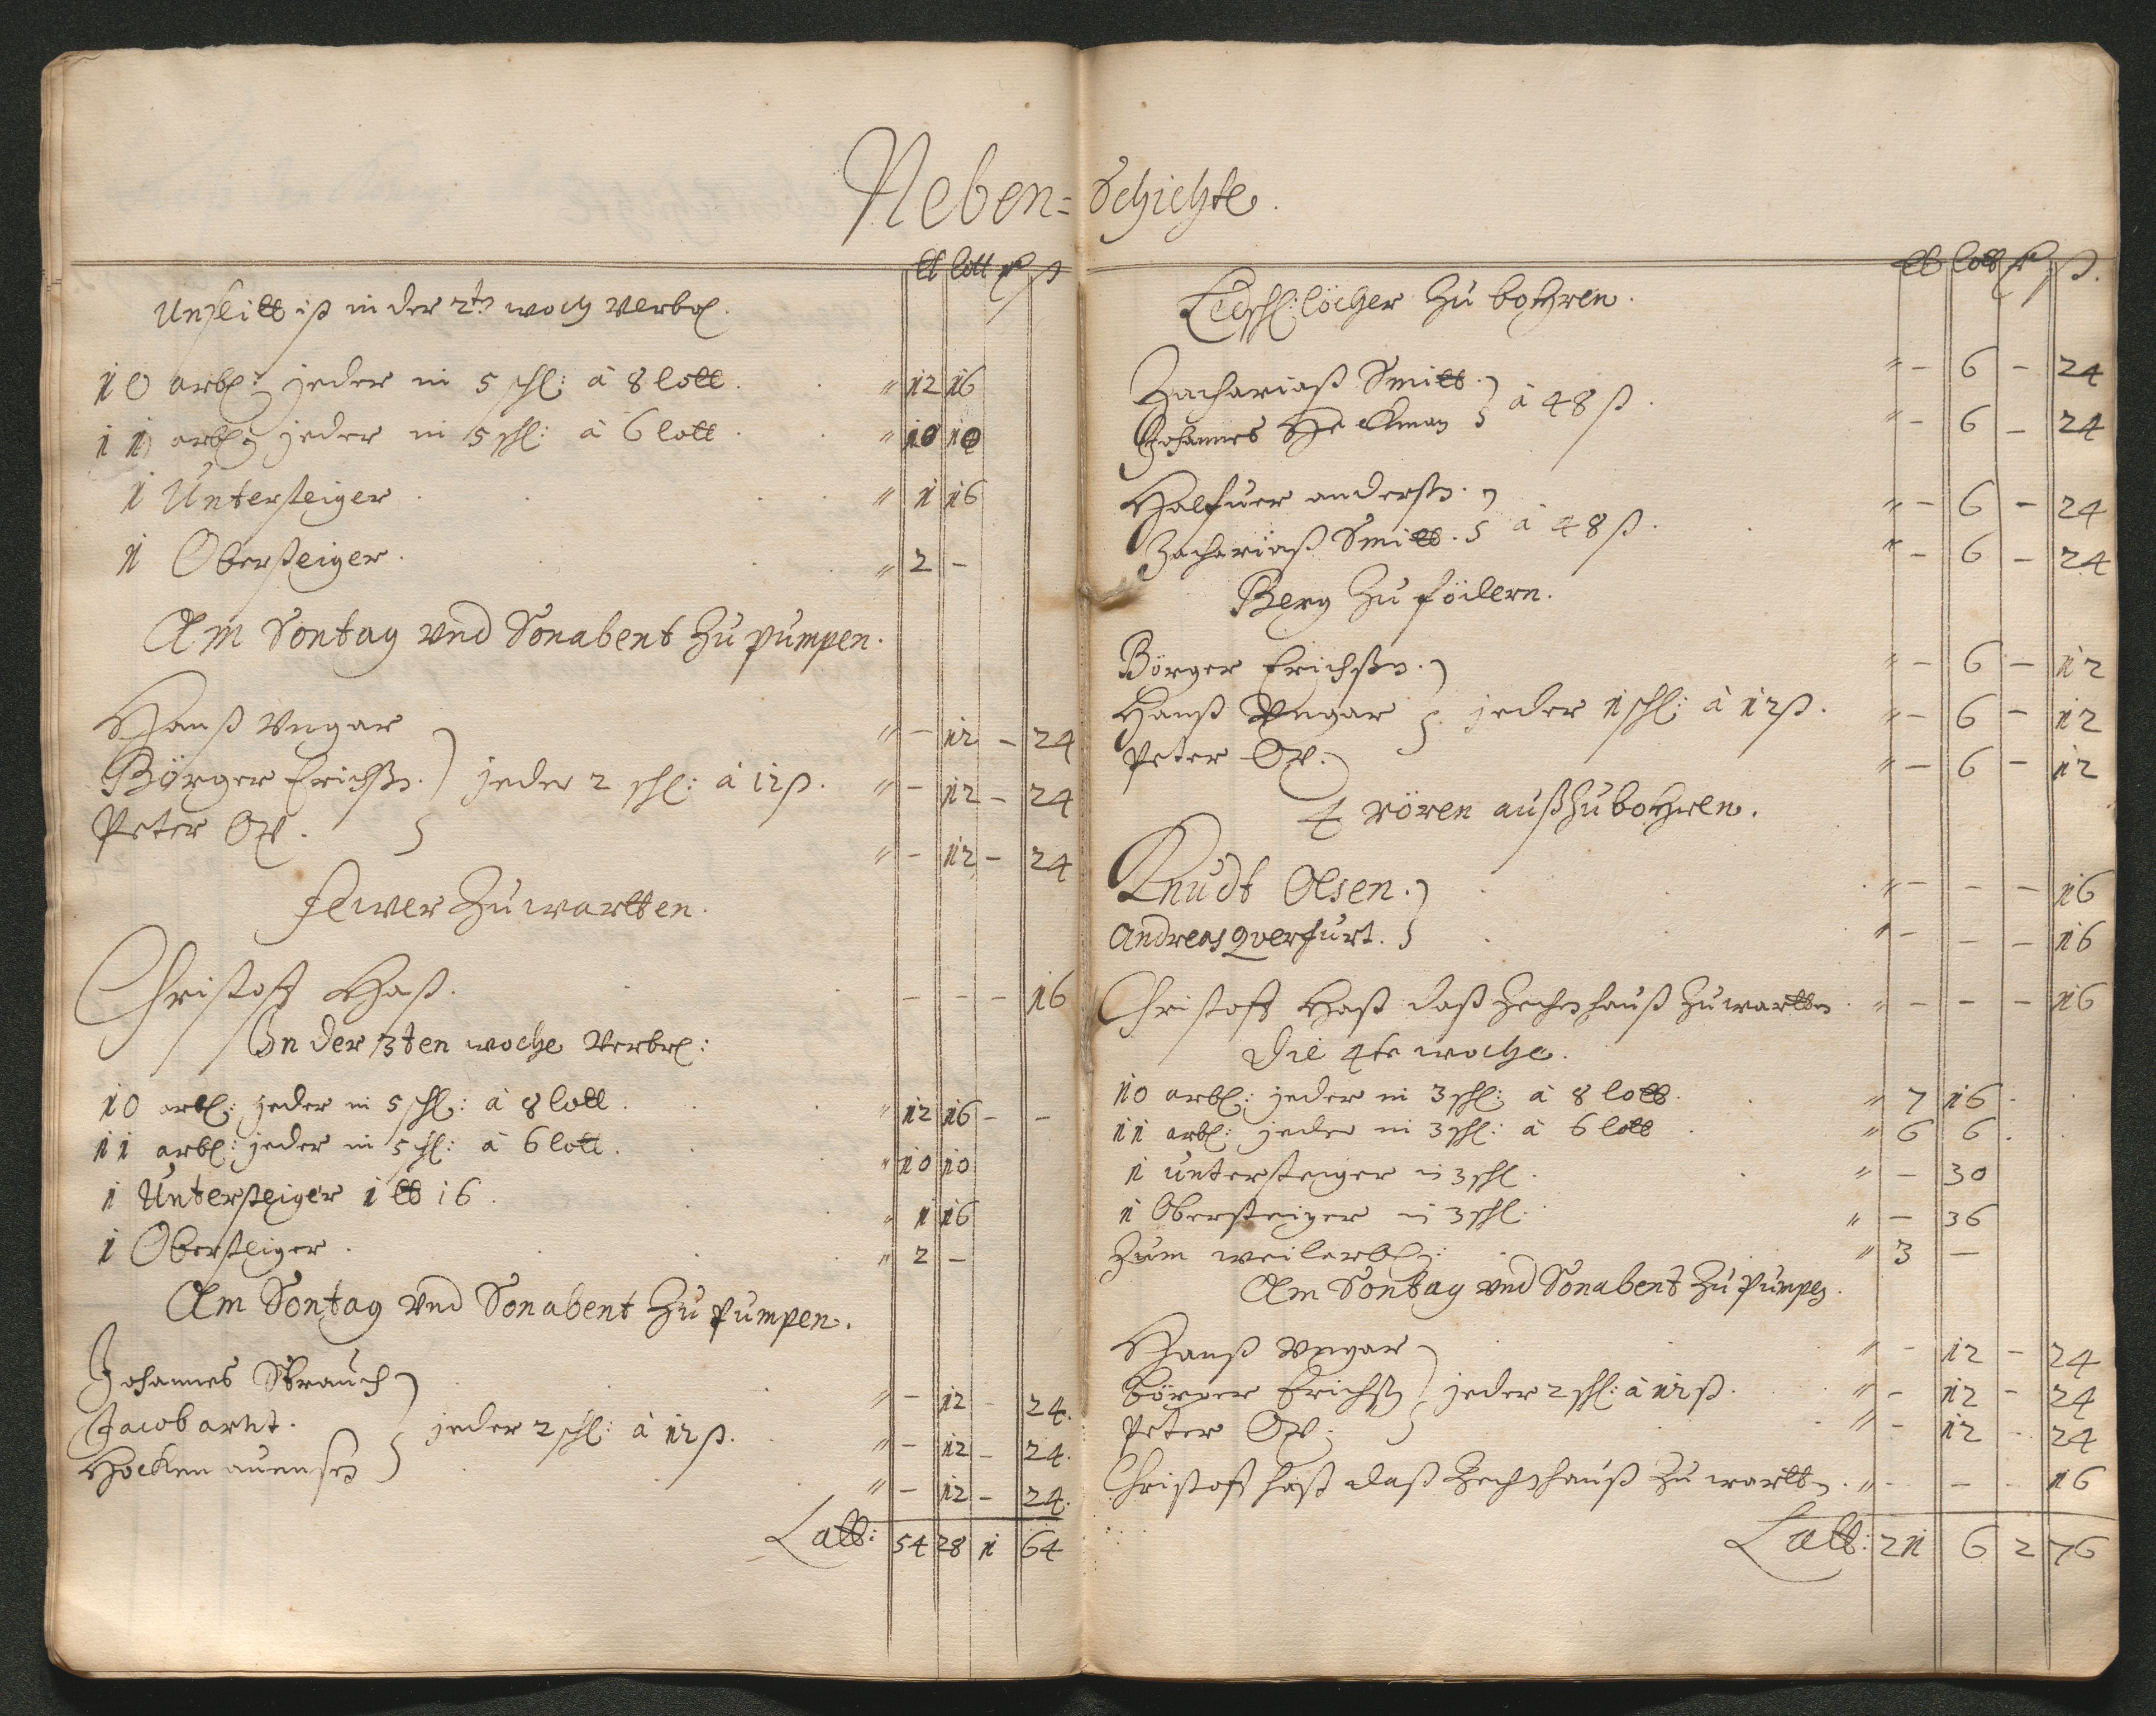 Neben= Schichte.
lb lott rd ß
Unßlitt iß in der 2ten woch Verbr.
10 arb: jeder in 5 schl: à 8 lott. " 12 16
11 arb: jeder in 5 schl: à 6 lott. " 10 10
1 Untersteiger. " 1 16
1 Obersteiger. " 2 -
Am Sontag vnd Sonabent Zu pumpen.
Hanß Vngar " - 12 - 24
Börger Erichßn. jeder 2 schl: à 12 ß. " - 12 - 24
Peter Ox. " - 12 - 24
fewer Zu wartten.
Christoff Haß. - - - 16
In der 3ten woche Verbr:
10 arb: jeder in 5 schl: à 8 lott. " 12 16 - -
11 arb: jeder in 5 schl: à 6 lott. " 10 10
1 Untersteiger 1 lb 16. " 1 16
1 Obersteiger. " 2 -
Am Sontag vnd Sonabent Zu Pumpen.
Johannes Strauch " - 12 - 24.
Jacob arnt. jeder 2 schl: à 12 ß. " - 12 - 24.
Hocken auenßen " - 12 - 24.
Latt: 54 28 1 64
lb lott rd ß.
löcher Zu bohren.
Zachariaß Smitt. " - 6 - 24
Johannes à 48 ß. " - 6 - 24
Halfuer anderßn. " - 6 - 24
Zachariaß Smitt. à 48 ß. " - 6 - 24
Berg Zu födern.
Börger Erichßn. " - 6 - 12
Hanß Vngar jeder 1 schl: à 12 ß. " - 6 - 12
Peter Ox. " - 6 - 12
4 rören auß Zu bohren.
Knudt Olsen. " - - - 16
Andreas Querfurt. " - - - 16
Christoff Haß daß Zechenhauß Zu wartten. " - - - 16
Die 4te woche.
10 arb: jeder in 3 schl: à 8 lott. " 7 16
11 arb: jeder in 3 schl: à 6 lott " 6 6
1 untersteiger in 3 schl. " - 30
1 Obersteiger in 3 schl: " - 36
Zum weilarb: " 3 -
Am Sontag vnd Sonabent Zu Pumpen.
Hanß Vngar " - 12 - 24
Börger Erichßn jeder 2 schl: à 12 ß. " - 12 - 24
Peter Ox. " - 12 - 24
Christoff haß daß Zechenhauß Zu wartten. " - - - 16
Latt: 21 6 2 76